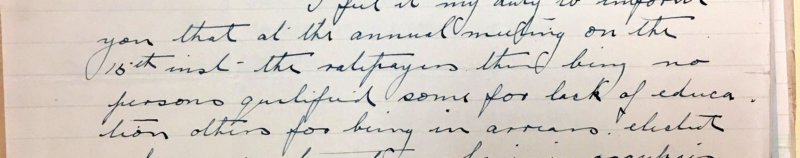 I felt it my duty to inform
you that at the annual meeting on the
15th inst - the ratepayers there being no
persons qualified some for lack of educa-
tion others for being in arrears. elected